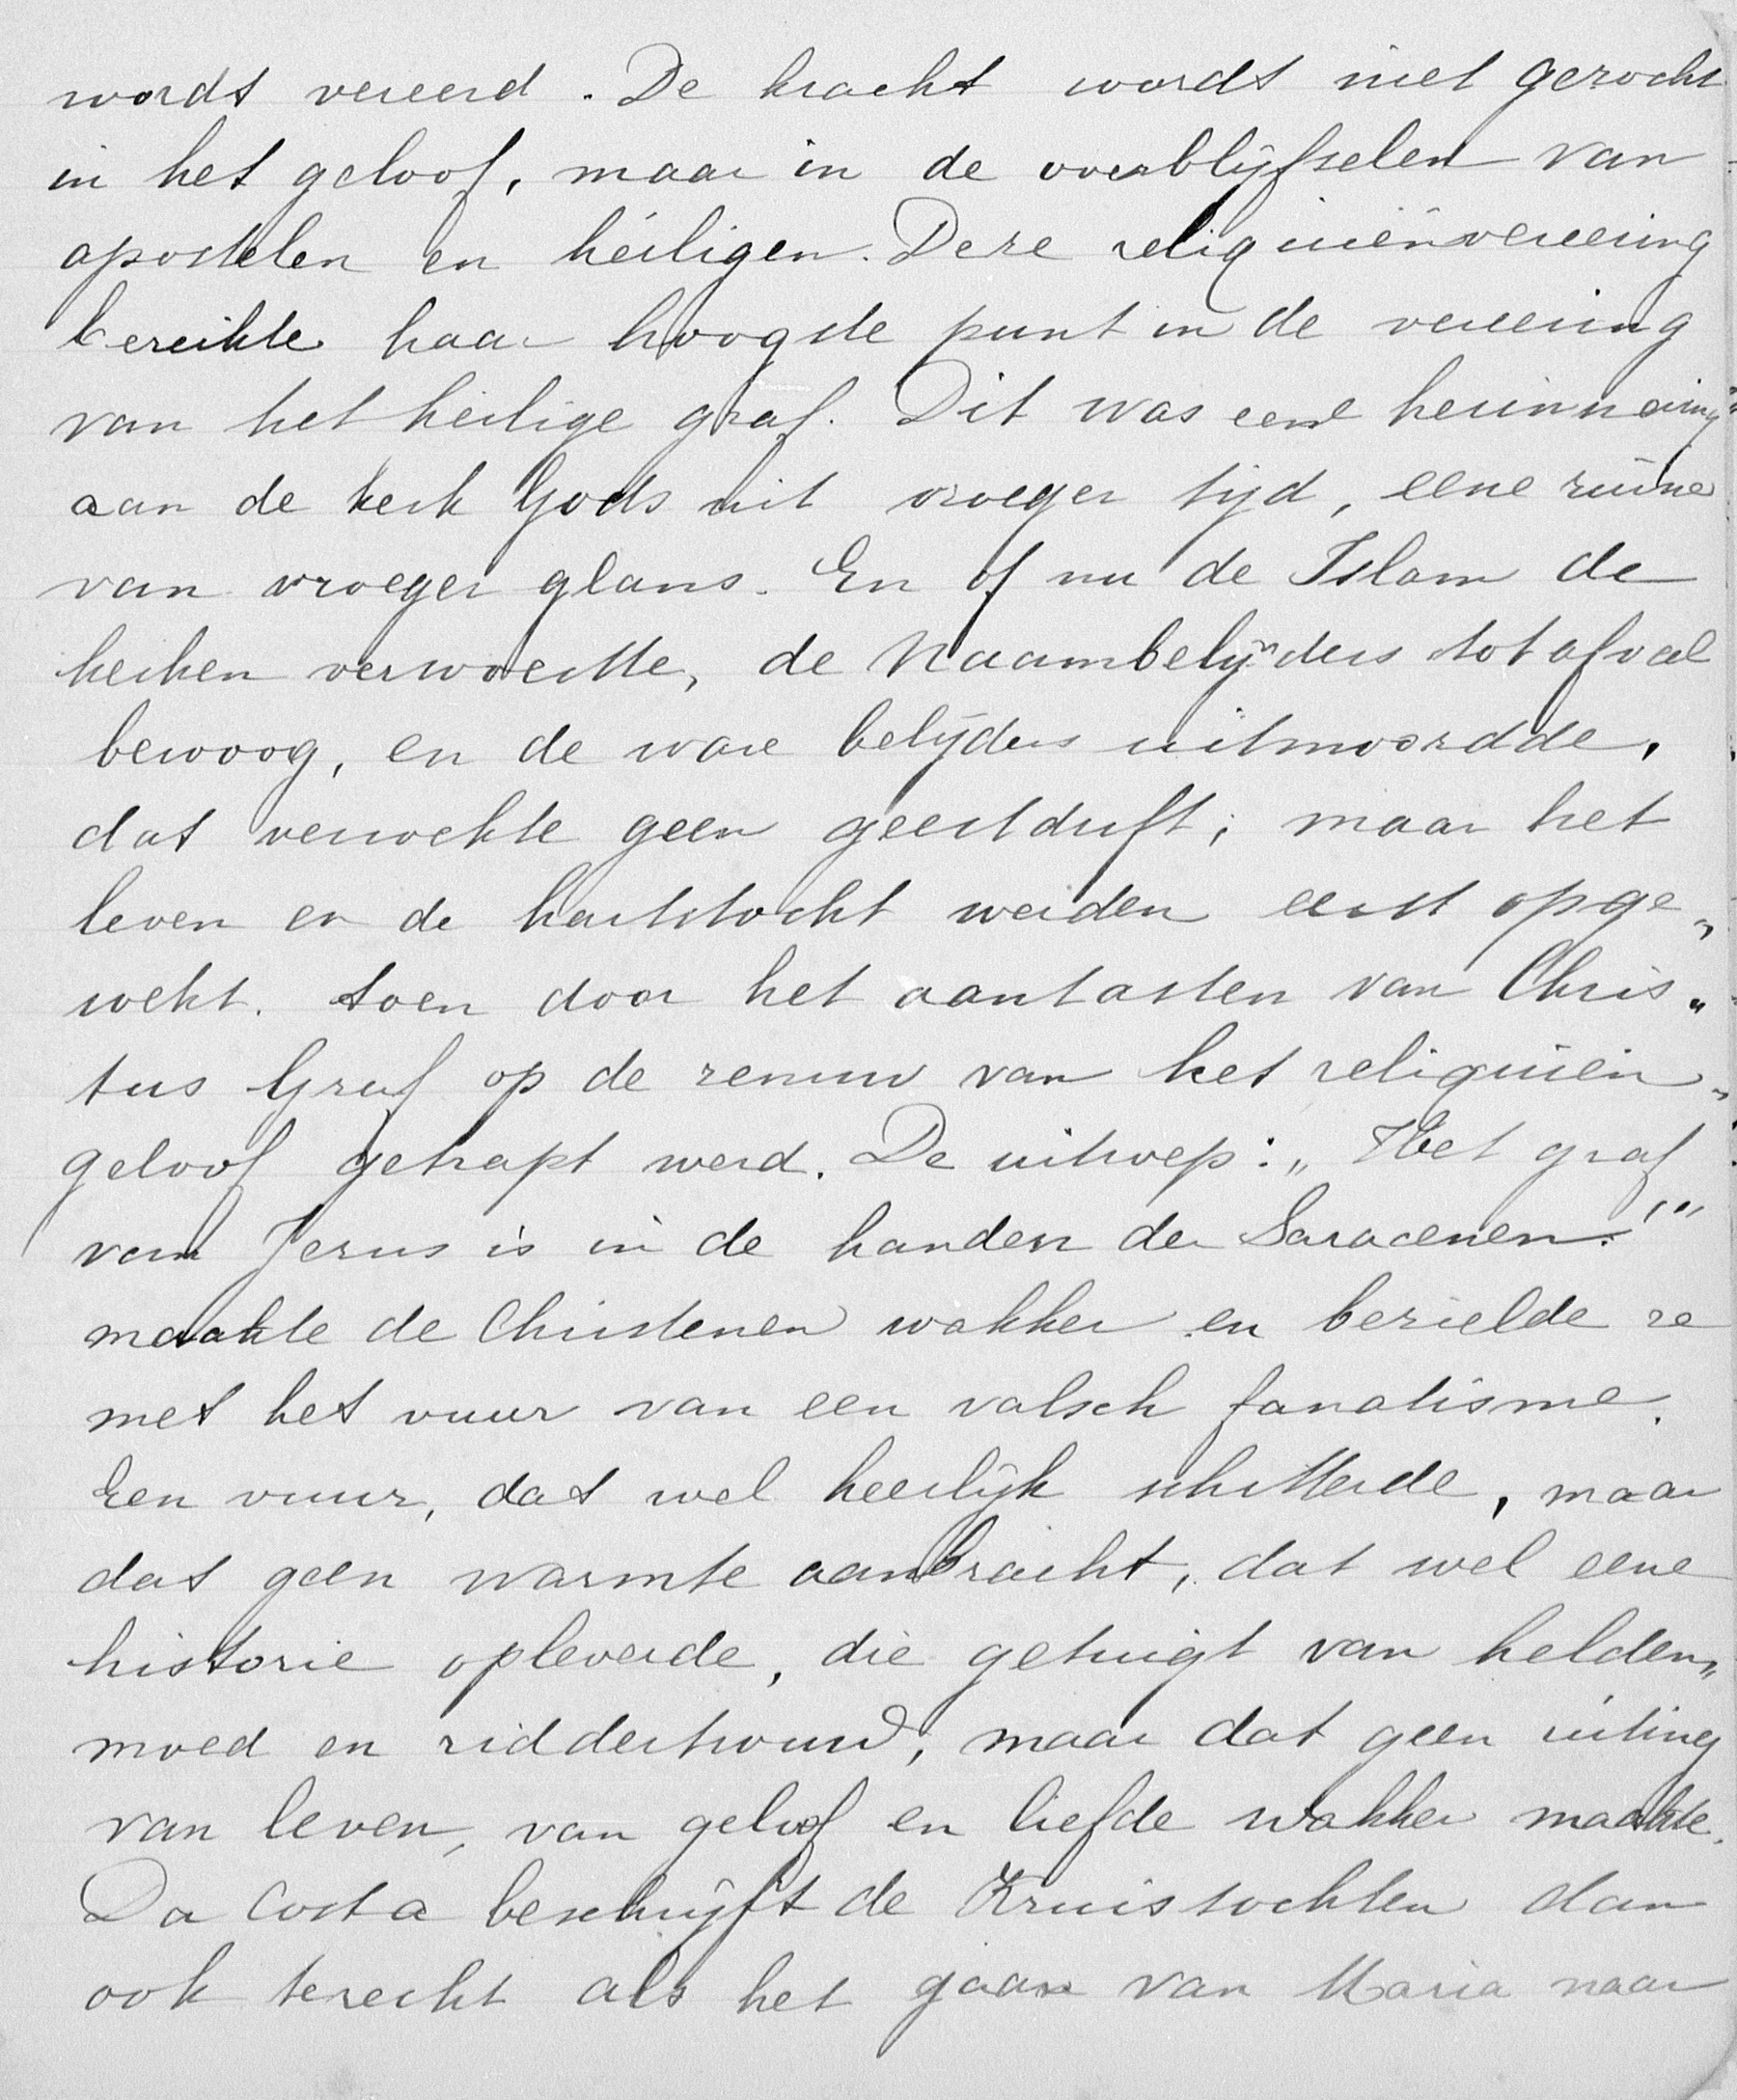 wordt vereerd. De kracht wordt niet gezocht
in het geloof, maar in de overblijfselen van
apostelen en heiligen. Deze reliquiënvereering
bereikte haar hoogste punt in de vereering
van het heilige graf. Dit was eene herinnering
aan de kerk Gods uit vroeger tijd, eene ruïne
van vroeger glans. En of nu de Islam de
kerken verwoestte, de Naambelijders tot afval
bewoog, en de ware belijders uitmoordde,
dat verwekte geen geestdrift; maar het
leven en de hartstocht werden eerst opge„
wekt. toen door het aantasten van Chris„
tus Graf op de zenuw van het reliquiën„
geloof getrapt werd. De uitroep: „Het graf
van Jezus is in de handen der Saracenen!"
maakte de Christenen wakker en bezielde ze
met het vuur van een valsch fanatisme.
Een vuur, dat wel heerlijk schitterde, maar
dat geen warmte aanbracht, dat wel eene
historie opleverde, die getuigt van helden„
moed en riddertrouw, maar dat geen uiting
van leven, van geloof en liefde wakker maakte.
Da Costa beschrijft de Kruistochten dan
ook terecht als het gaan van Maria naar